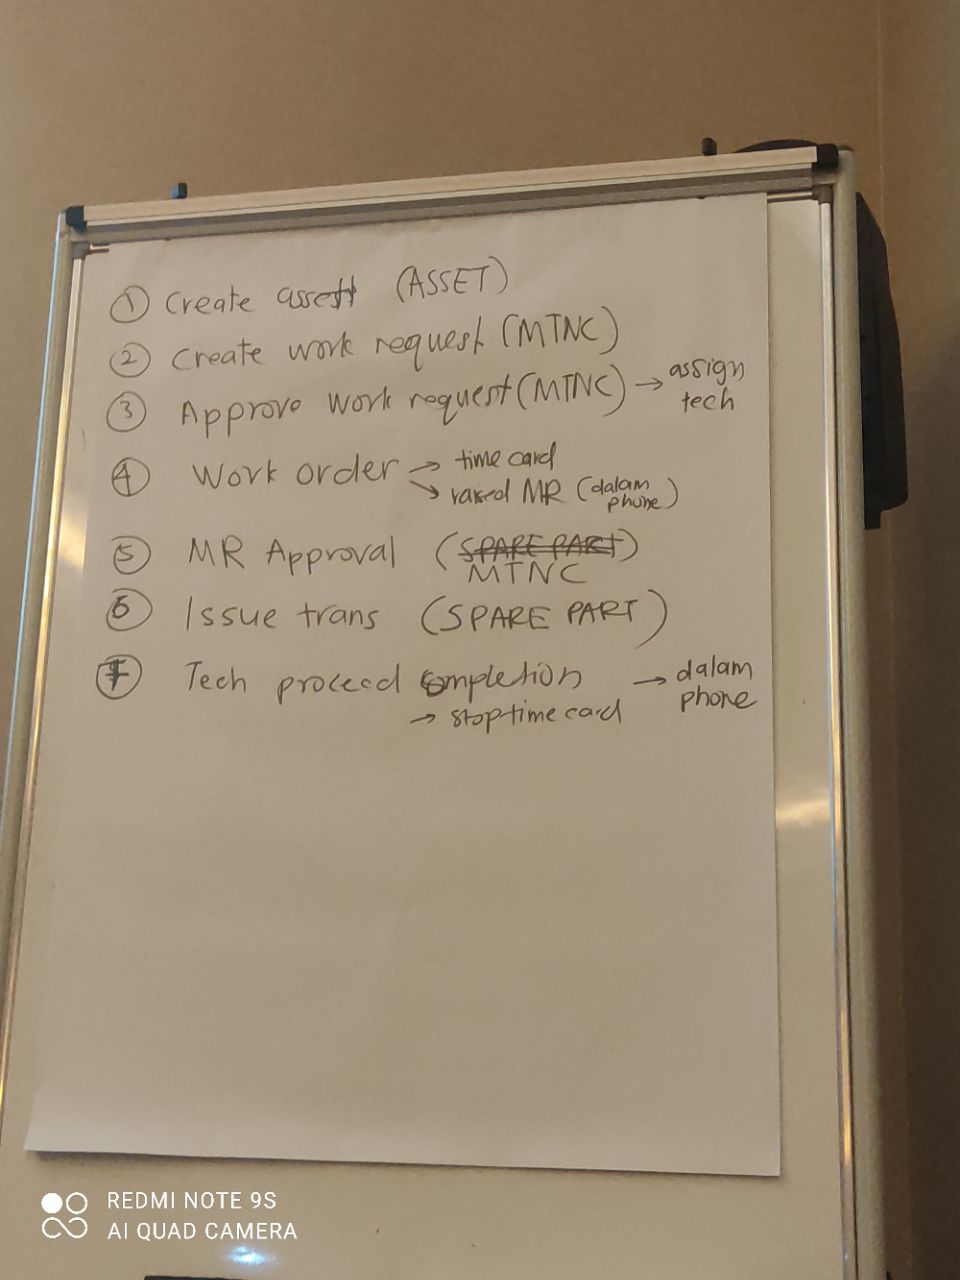 ① Create asset (ASSET)
② Create work request (MTNC)
③ Approve work request (MTNC) → assign tech
④ Work order → time card
→ raised MR (dalam phone)
⑤ MR Approval (SPARE PART)
MTNC
⑥ Issue trans (SPARE PART)
⑦ Tech proceed completion → dalam phone
→ stop time card
REDMI NOTE 9S
AI QUAD CAMERA